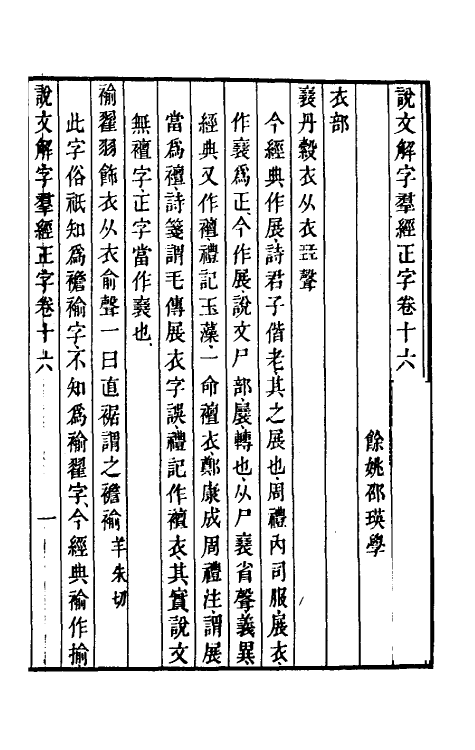 說文解字羣經正字卷十六
餘姚邵瑛學
衣部
襄丹縠衣从衣㠭聲
今經典作展詩君子偕老其之展也周禮內司服展衣
作襄為正今作展說文尸部展轉也从尸襄省聲義異
經典又作襢禮記玉藻一命襢衣鄭康成周禮注謂展
當為襢詩箋謂毛傳展衣字誤禮記作襢衣其實說文
無襢字正字當作襄也
褕翟羽飾衣从衣俞聲一曰直裾謂之襜褕羊朱切
此字俗祇知為襜褕字不知為褕翟字今經典褕作揄
說文解字羣經正字卷十六
一